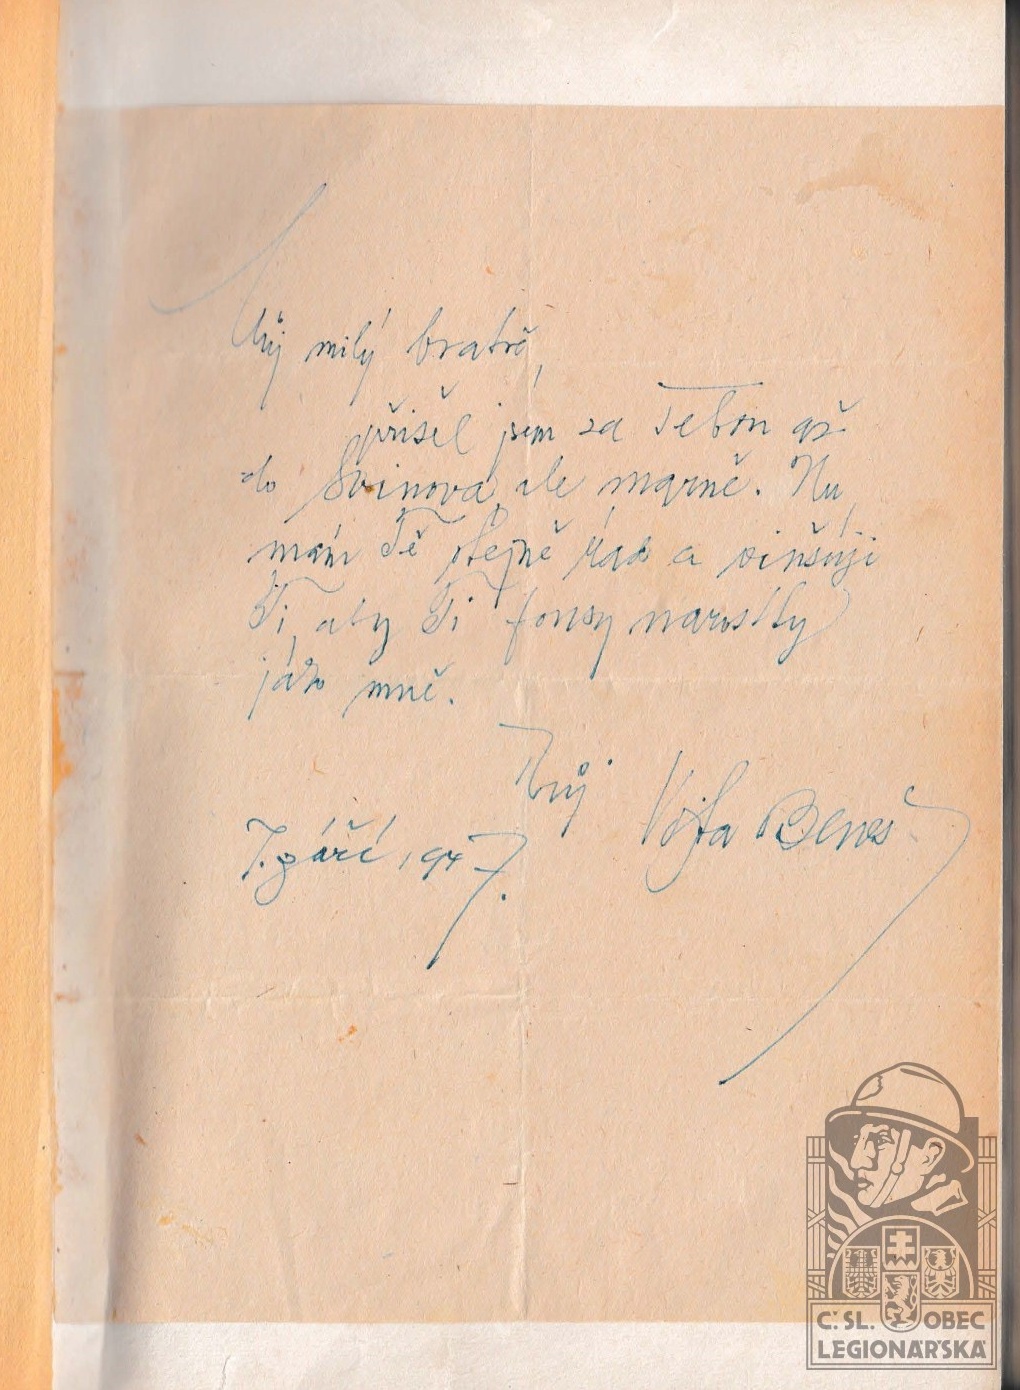 Můj milý bratře,
přišel jsem za Tebou až
do Svinova, ale marně. Nu,
mám Tě stejně rád a vinšuji
Ti, aby Ti fousy narostly
jako mně.
Tvůj Vojta Beneš
7. září 1947.
Č.SL. OBEC
LEGIONÁŘSKÁ